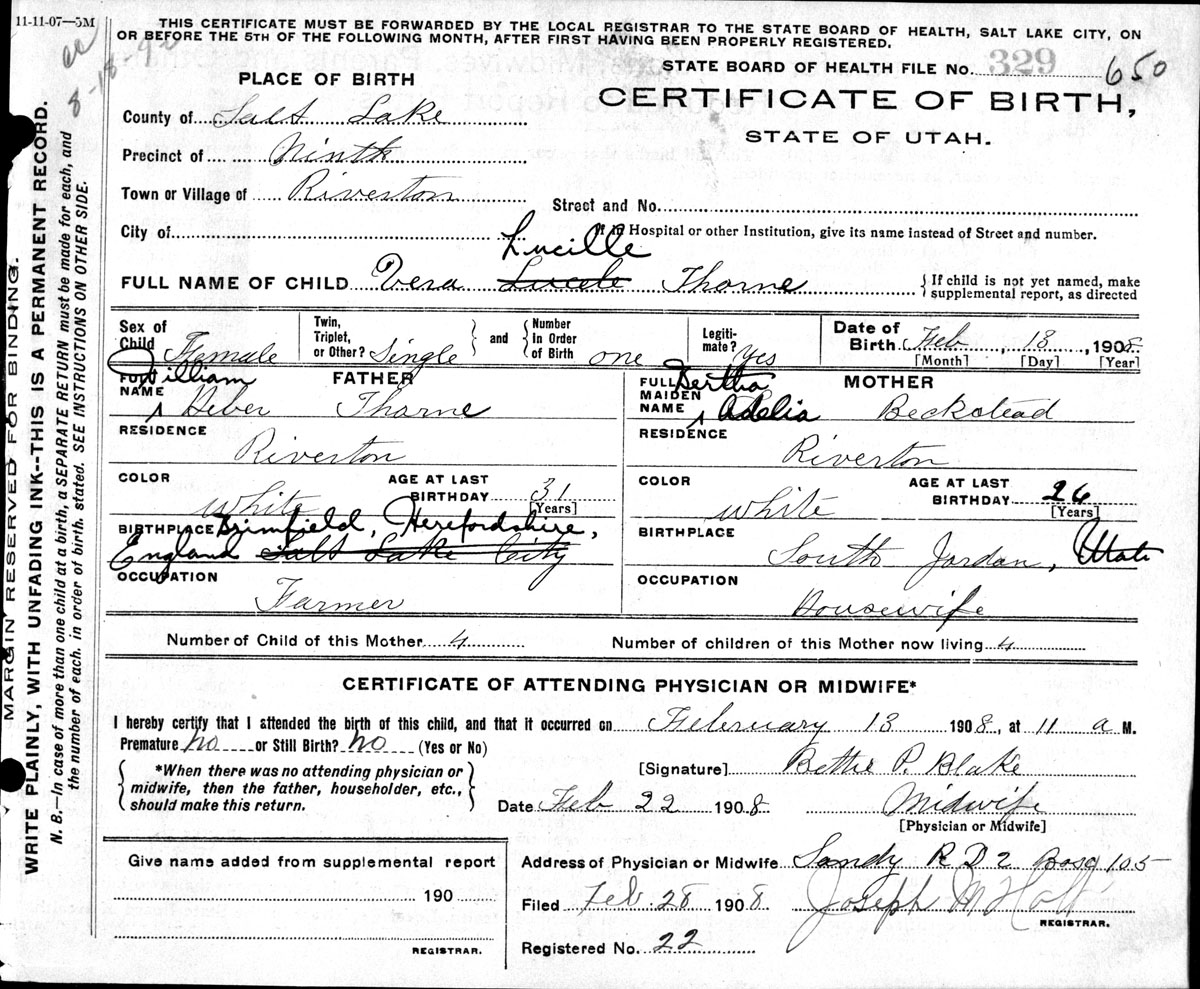 11-11-07—5M
THIS CERTIFICATE MUST BE FORWARDED BY THE LOCAL REGISTRAR TO THE STATE BOARD OF HEALTH, SALT LAKE CITY, ON
OR BEFORE THE 5TH OF THE FOLLOWING MONTH, AFTER FIRST HAVING BEEN PROPERLY REGISTERED.
STATE BOARD OF HEALTH FILE No. 329 650
PLACE OF BIRTH
CERTIFICATE OF BIRTH,
STATE OF UTAH.
County of Salt Lake
Precinct of Ninth
Town or Village of Riverton
Street and No.
City of
If in Hospital or other Institution, give its name instead of Street and number.
Lucille
FULL NAME OF CHILD Vera Lucele Thorne
If child is not yet named, make
supplemental report, as directed
Sex of Child Female
Twin, Triplet, or Other? Single
and Number In Order of Birth one
Legiti-mate? Yes
Date of Birth Feb, 13, 1908.
[Month] [Day] [Year]
FATHER
FULL NAME William
Heber Thorne
RESIDENCE
Riverton
COLOR White
AGE AT LAST BIRTHDAY 31
[Years]
BIRTHPLACE Brimfield, Herefordshire,
England Salt Lake City
OCCUPATION
Farmer
MOTHER
FULL MAIDEN NAME Bertha
Adelia Beckstead
RESIDENCE
Riverton
COLOR White
AGE AT LAST BIRTHDAY 26
[Years]
BIRTHPLACE
South Jordan, Utah
OCCUPATION
Housewife
Number of Child of this Mother 4
Number of children of this Mother now living 4
CERTIFICATE OF ATTENDING PHYSICIAN OR MIDWIFE*
I hereby certify that I attended the birth of this child, and that it occurred on February 13 1908, at 11 a M.
Premature No or Still Birth? No (Yes or No)
*When there was no attending physician or
midwife, then the father, householder, etc.,
should make this return.
[Signature] Bettie P. Blake
Date Feb 22 1908 Midwife
[Physician or Midwife]
Give name added from supplemental report
190
REGISTRAR.
Address of Physician or Midwife Sandy R D 2 105
Filed Feb. 28 1908 Joseph M Holt
REGISTRAR.
Registered No. 22
MARGIN RESERVED FOR BINDING.
WRITE PLAINLY, WITH UNFADING INK--THIS IS A PERMANENT RECORD.
N. B.—In case of more than one child at a birth, a SEPARATE RETURN must be made for each, and
the number of each. in order of birth, stated. SEE INSTRUCTIONS ON OTHER SIDE.